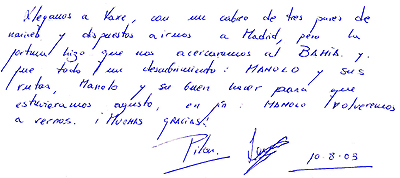 Llegamos a Vare, con un cabreo de tres pares de
narices y dispuestos a irnos a Madrid, pero la
fortuna hizo que nos acercaramos al BAHIA. y
fue todo un descubrimiento: MANOLO y sus
rutas, Manolo y su buen hacer para que
estuvieramos agusto, en fin: MANOLO VOLVEREMOS
a vernos. ¡MUCHAS GRACIAS!
Pilar.
10-8-03